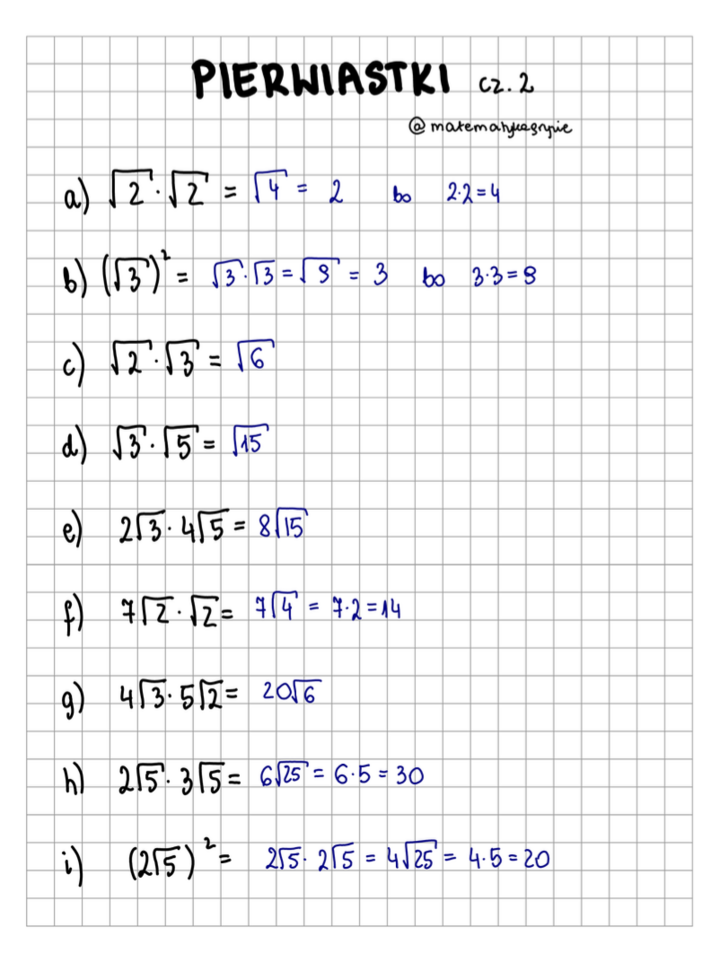 PIERWIASTKI cz. 2
a) √2 · √2 = √4 = 2 bo 2·2=4
b) (√3)² = √3 · √3 = √9 = 3 bo 3·3=9
c) √2 · √3 = √6
d) √3 · √5 = √15
e) 2√3 · 4√5 = 8√15
f) 7√2 · √2 = 7√4 = 7·2 = 14
g) 4√3 · 5√2 = 20√6
h) 2√5 · 3√5 = 6√25 = 6·5 = 30
i) (2√5)² = 2√5 · 2√5 = 4√25 = 4·5 = 20